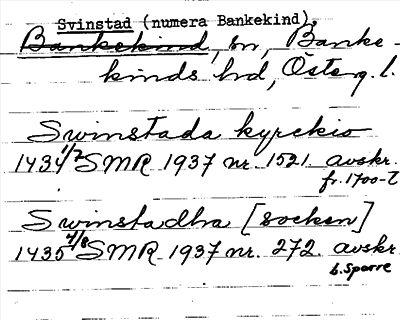 Svinstad (numera Bankekind),
Bankekind, sn, Banke-
kinds hd, Österg. l.
Swinstada kyrekio
1434 1/7 SMR 1937 nr. 1521. avskr.
fr. 1700-t
Swinstadha [socken]
1435 4/8 SMR 1937 nr. 272. avskr.
b. Sparre